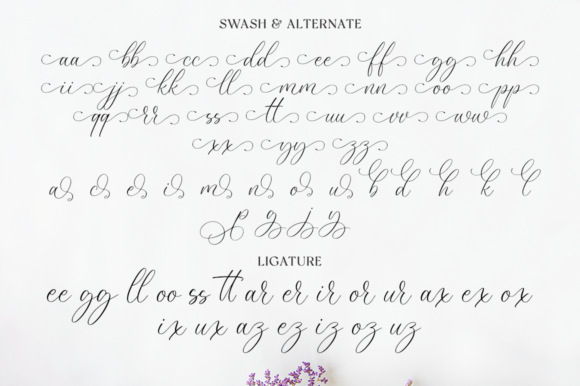 SWASH & ALTERNATE
aa bb cc dd ee ff gg hh
ii jj kk ll mm nn oo pp
qq rr ss tt uu vv ww
xx yy zz
a c e i m n o u b d h k l
p g j y
LIGATURE
ee gg ll oo ss tt ar er ir or ur ax ex ox
ix ux az ez iz oz uz